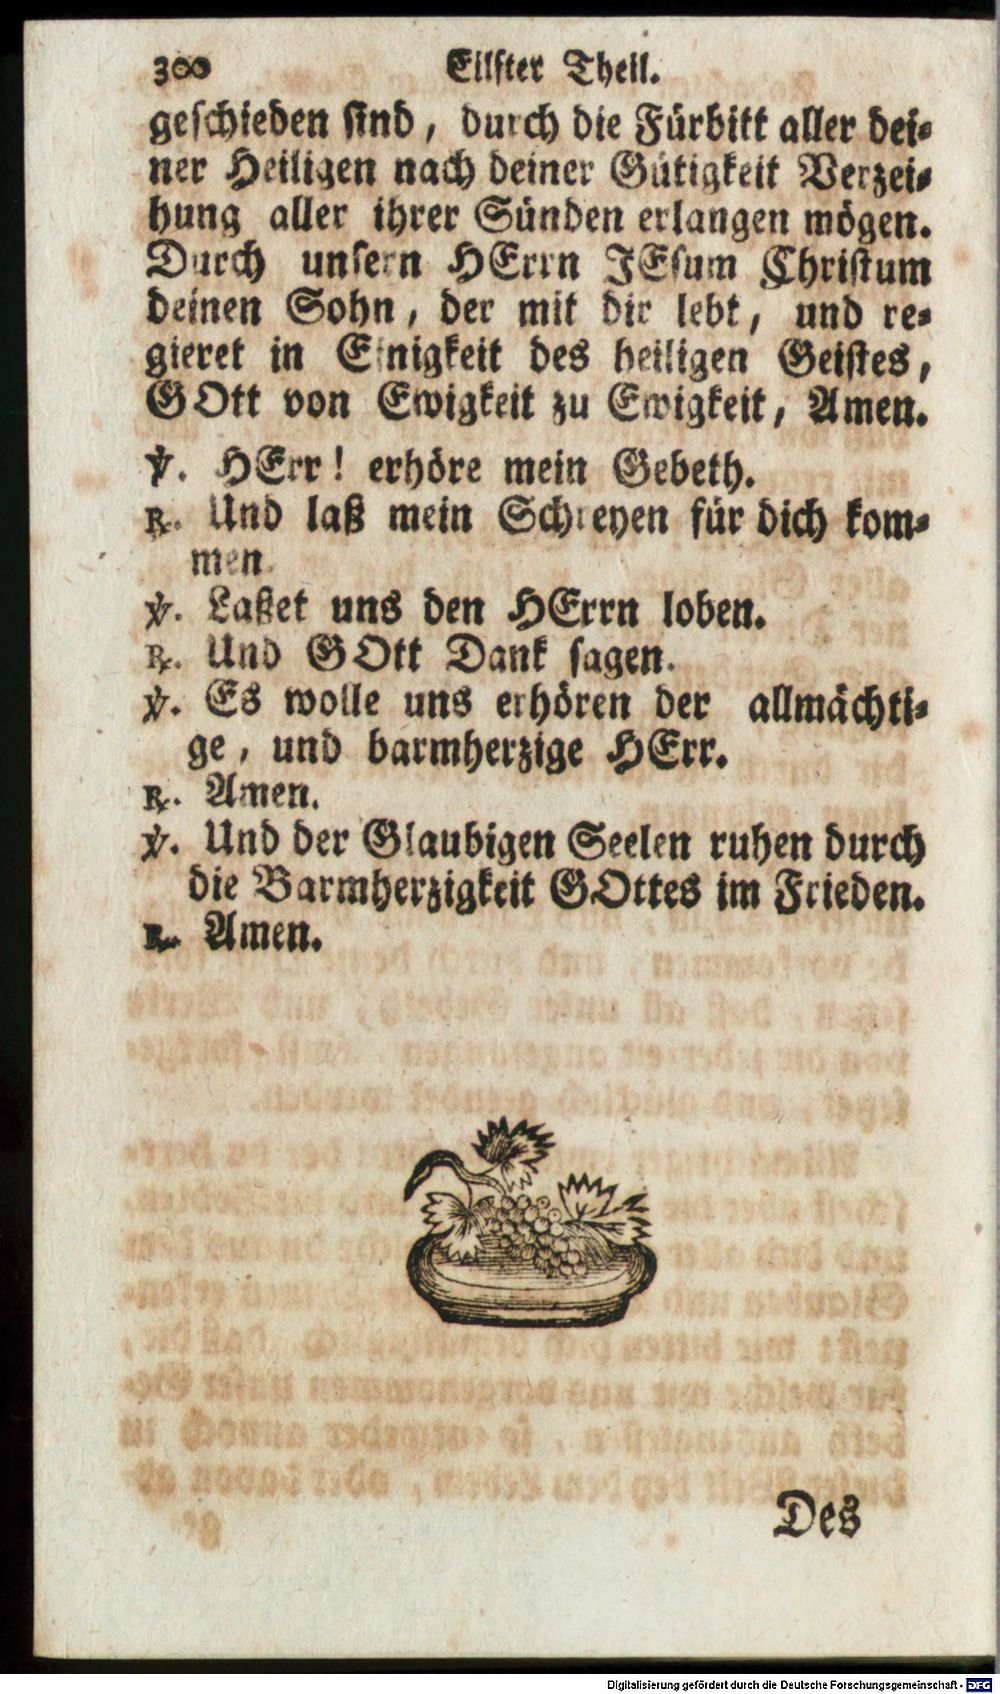 300 Eilfter Theil.
geschieden sind, durch die Fürbitt aller dei-
ner Heiligen nach deiner Gütigkeit Verzei-
hung aller ihrer Sünden erlangen mögen.
Durch unsern HErrn JEsum Christum
deinen Sohn, der mit dir lebt, und re-
gieret in Einigkeit des heiligen Geistes,
GOtt von Ewigkeit zu Ewigkeit, Amen.
℣. HErr! erhöre mein Gebeth.
℟. Und laß mein Schreyen für dich kom-
men.
℣. Laßet uns den HErrn loben.
℟. Und GOtt Dank sagen.
℣. Es wolle uns erhören der allmächti-
ge, und barmherzige HErr.
℟. Amen.
℣. Und der Glaubigen Seelen ruhen durch
die Barmherzigkeit GOttes im Frieden.
℟. Amen.
Des
Digitalisierung gefördert durch die Deutsche Forschungsgemeinschaft - DFG